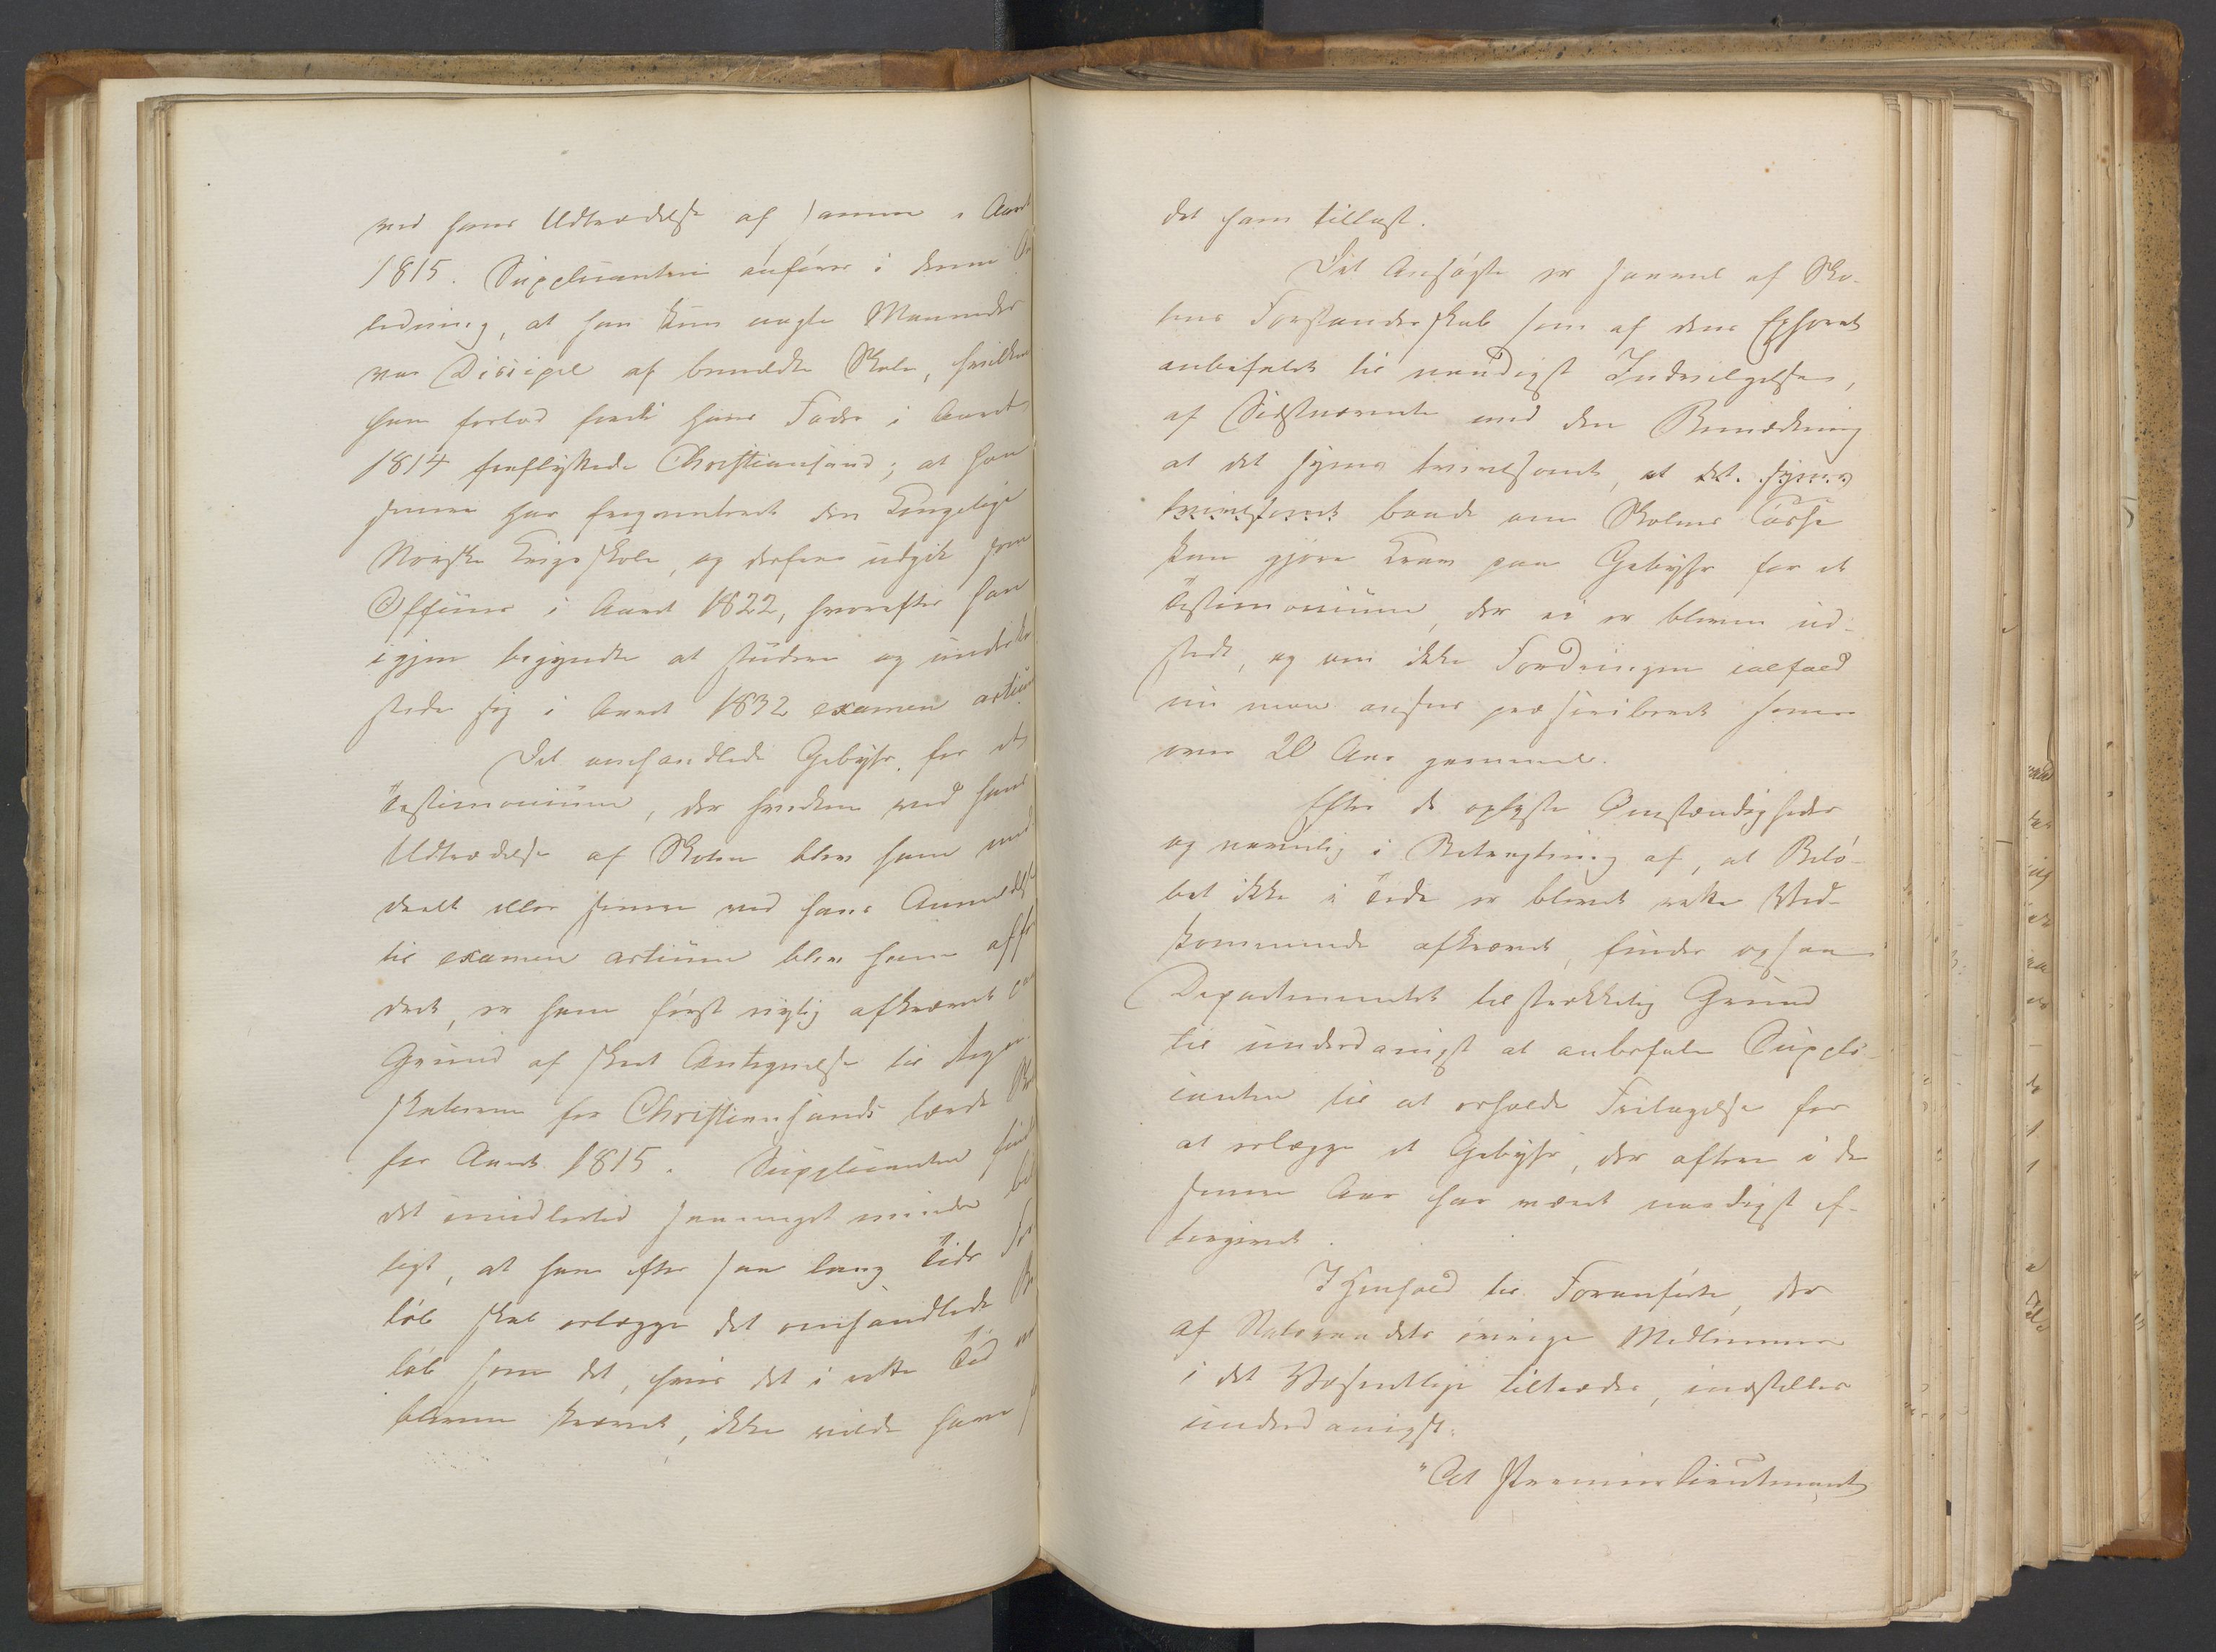 ved hans Udtrædelse af samme i Aaret
1815. Supplicanten anfører i denne
ledning, at han kun nogle Maaneder
var Discipel af bemeldte Skole, hvilken
han forlod fordi hans Fader i Aaret
1814 fraflyttede Christiansand; at han
senere har frequenteret den Kongelige
Norske Krigsskole, og derfra udgik som
Officier i Aaret 1822, hvorefter han
igjen begyndte at studere og underka-
stede sig i Aaret 1832 examen artium
Det omhandlede Gebyhr for et
Testimonium, der hverken ved hans
Udtrædelse af Skolen blev ham med
deelt eller senere ved hans Anmeldelse
til examen artium blev ham affor
dret, er ham først nylig afkrævet paa
Grund af skeet Antegnelse til Regn-
skaberne for Christiansands lærde Sko
for Aaret 1815. Supplicanten finder
det imidlertid saameget mindre bil
ligt, at han efter saa lang Tids For
løb skal erlægge det omhandlede Be
løb som det, hvis det i rette Tid var
bleven krævet, ikke vilde have
det ham tillagt.
Det Ansøgte er saavel af Sko-
lens Forstanderskab som af dens Ephorat
anbefalet til naadigst Indvilgelse,
af Sidstnævnte med den Bemærkning
at det synes tvivlsomt, at det synes
tvivlsomt baade om Skolens Casse
kan gjøre Krav paa Gebyhr for et
Testimonium, der ei er bleven ud-
stedt, og om ikke Fordringen ialfald
nu maa ansees præscriberet som
over 20 Aar gammel.
Efter de oplyste Omstændigheder
og navnlig i Betragtning af, at Belø-
bet ikke i Tide er blevet rette Ved-
kommende afkrævet, finder ogsaa
Departementet tilstrækkelig Grund
til underdanigst at anbefale Suppli-
canten til at erholde Fritagelse for
at erlægge et Gebyhr, der oftere i de
senere Aar har været naadigst ef-
tergivet.
I Henhold til Foranførte, der
af Statsraadets øvrige Medlemmer
i det Væsentlige tiltrædes, indstilles
underdanigst:
"At Premierlieutenant